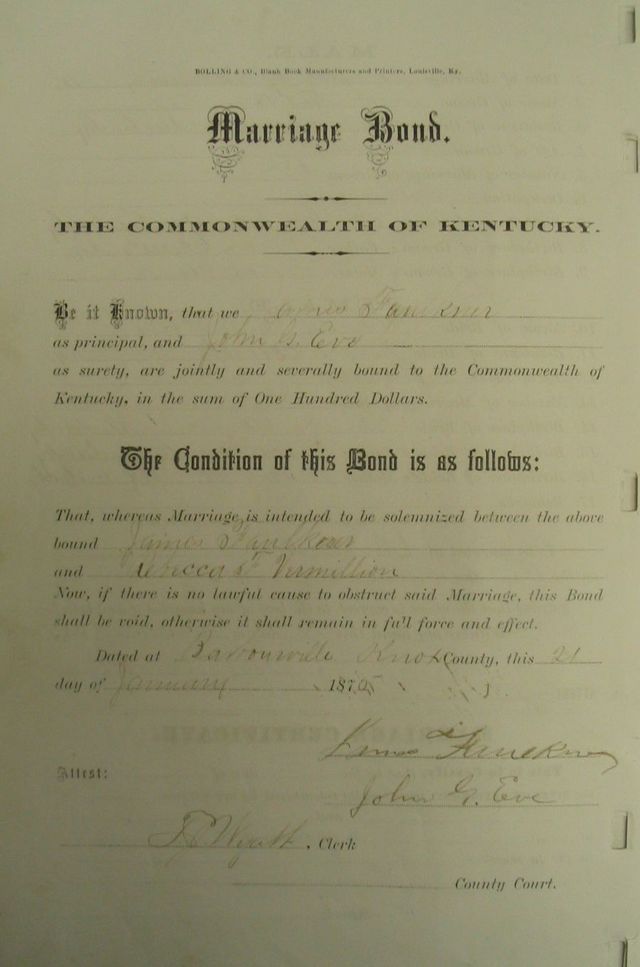 BOLLING & CO., Blank Book Manufacturers and Printers, Louisville, Ky.
Marriage Bond.
THE COMMONWEALTH OF KENTUCKY.
Be it Known, that we James Faulkner
as principal, and John G. Eve
as surety, are jointly and severally bound to the Commonwealth of
Kentucky, in the sum of One Hundred Dollars.
The Condition of this Bond is as follows:
That, whereas Marriage is intended to be solemnized between the above
bound James Faulkner
and Rebecca Vermillion
Now, if there is no lawful cause to obstruct said Marriage, this Bond
shall be void, otherwise it shall remain in full force and effect.
Dated at Barbourville Knox County, this 21
day of January 1875
James Faulkner
Attest:
John G. Eve
Wyatt, Clerk
County Court.